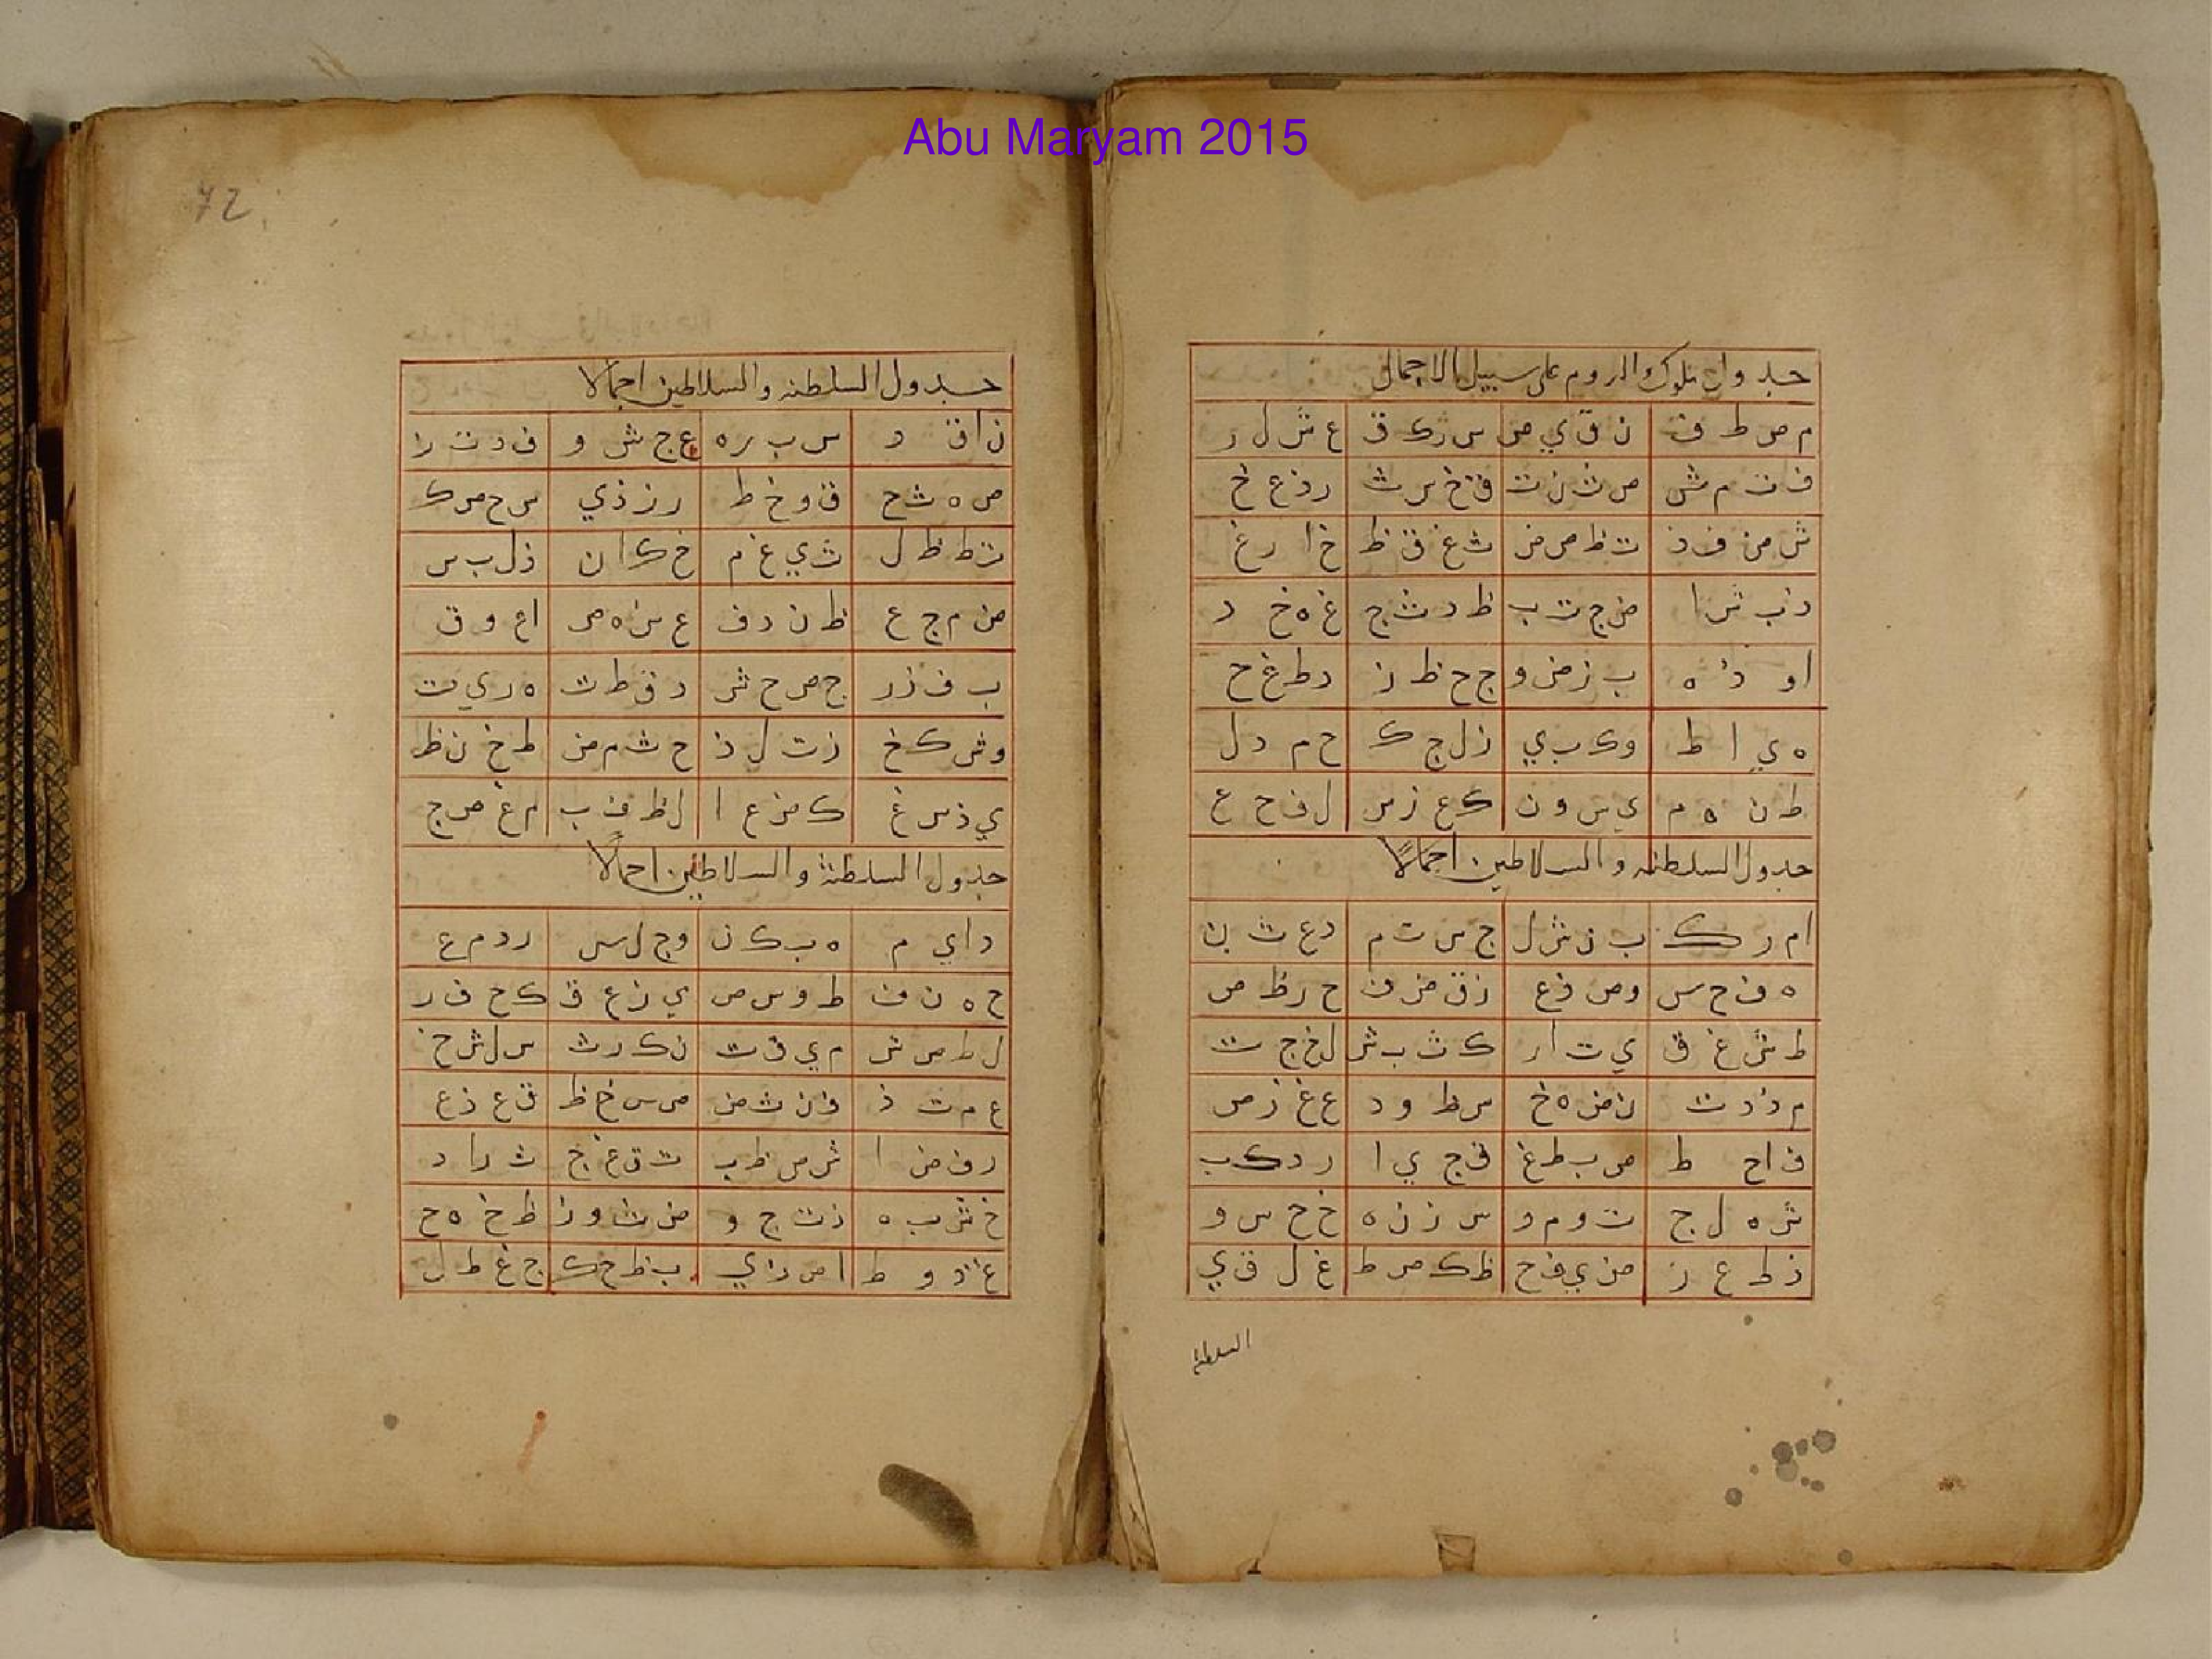 Abu Maryam 2015
جدول ملوك الروم على سبيل الاجمال
م ص ط ف ن ق ي ص س ر ك ق ع ش ل ر
ف ت م ش ص ث ن ت ق خ س ث ر ذ ع خ
ش ض ف ذ ت ظ ص ض ث غ ق ظ خ ا ر غ
ذ ب ش ا ض ج ت ب ظ د ث ج غ ه خ د
ا و ذ ه ب ز ض و ج ح ظ ز د ط غ ح
ه ي ا ط و ك ب ي ز ل ج ك ح م د ل
ط ن ه م ي س و ن ك ع ز س ل ف ح ع
جدول السلطنه والسلاطين اجمالاً
ا م ر ك ب ن ش ل ج س ت م د ع ث ن
ه ف خ س و ص ذ ع ز ق ض ف ح ر ظ ص
ط ش غ ق ي ت ا ر ك ث ب ش ل خ ج ت
م ذ د ث ن ض ه خ س ظ و د ع غ ز ص
ف ا ح ط ص ب ط غ ق ج ي ا ر د ك ب
ش ه ل ج ت و م و س ز ن ه خ ح س و
ذ ط ع ز ض ي ف ح ظ ك ص ط غ ل ق ي
السلطنة
72
جدول السلطنه والسلاطين اجمالا
ن ا ق د س ب ر ه ع ج ش و ف د ت ز
ص ه ث ح ق و خ ط ر ز ذ ي س ح ص ك
ت ط ظ ل ث ي غ م خ ك ا ن ذ ل ب س
ض م ج ع ظ ن د ف ع س ه ص ا ع و ق
ب ف ز ر ج ص ح ش د ق ط ث ه ر ي ت
و ش ك خ ز ت ل ذ ح ث م ض ط خ ن ظ
ي ذ س غ ك ض ع ا ل ظ ف ب م غ ص ج
جدول السلطنة والسلاطين اجمالاً
د ا ي م ه ب ك ن و ج ل س ر د م ع
ح ه ن ف ط و س ص ي ز ع ق ك ح ف ر
ل ط ص ش م ي ق ت ن ك ر ث س ل ش خ
ع م ت ذ ف ن ث ض ص س خ ظ ق ع ذ ع
ر ف ض ا ش ص ظ ب ت ق غ ج ث ر ا د
خ ش ب ه ذ ت ج و ض ث و ز ظ خ ه ح
غ ذ و ط ا ض ز ي ب ظ ح ك ج غ ط ل